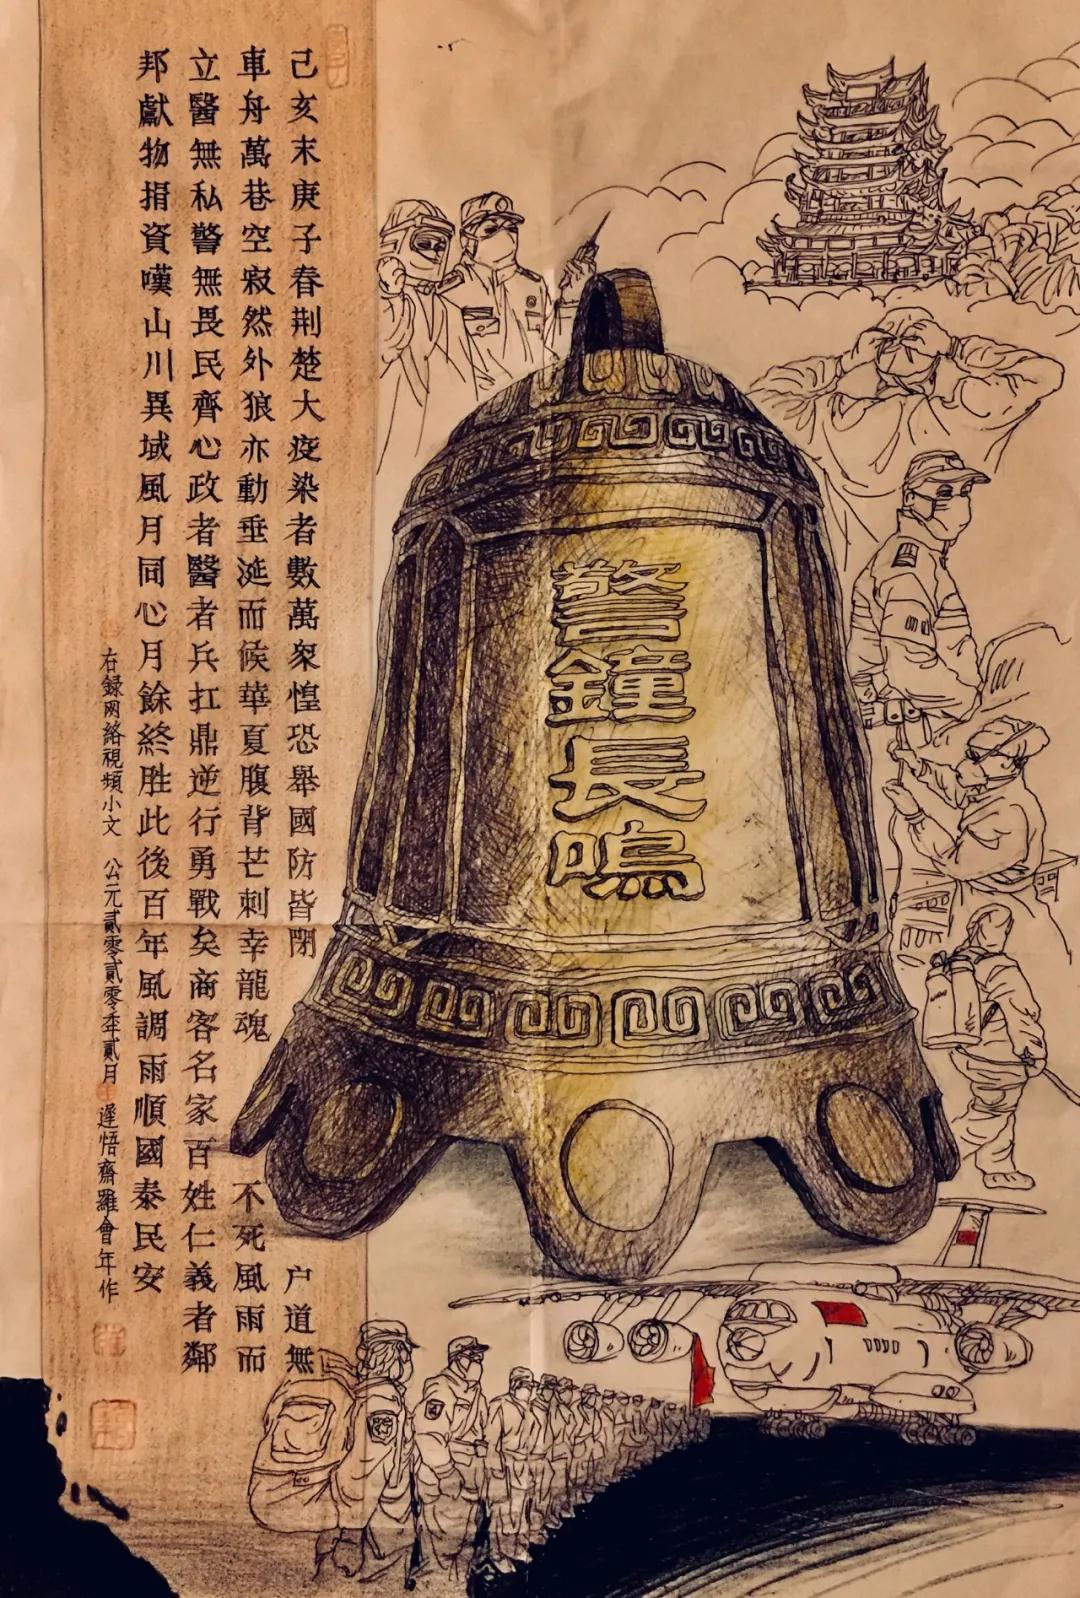 警鐘長鳴
己亥末庚子春荆楚大疫染者數萬衆惶恐舉國防皆閉户道無
車舟萬巷空寂然外狼亦動垂涎而候華夏腹背芒刺幸龍魂不死風雨而
立醫無私警無畏民齊心政者醫者兵扛鼎逆行勇戰矣商客名家百姓仁義者鄰
邦獻物捐資嘆山川異域風月同心月餘終胜此後百年風調雨順國泰民安
右録网絡視頻小文 公元貳零貳零年貳月 遲悟齋羅會年作